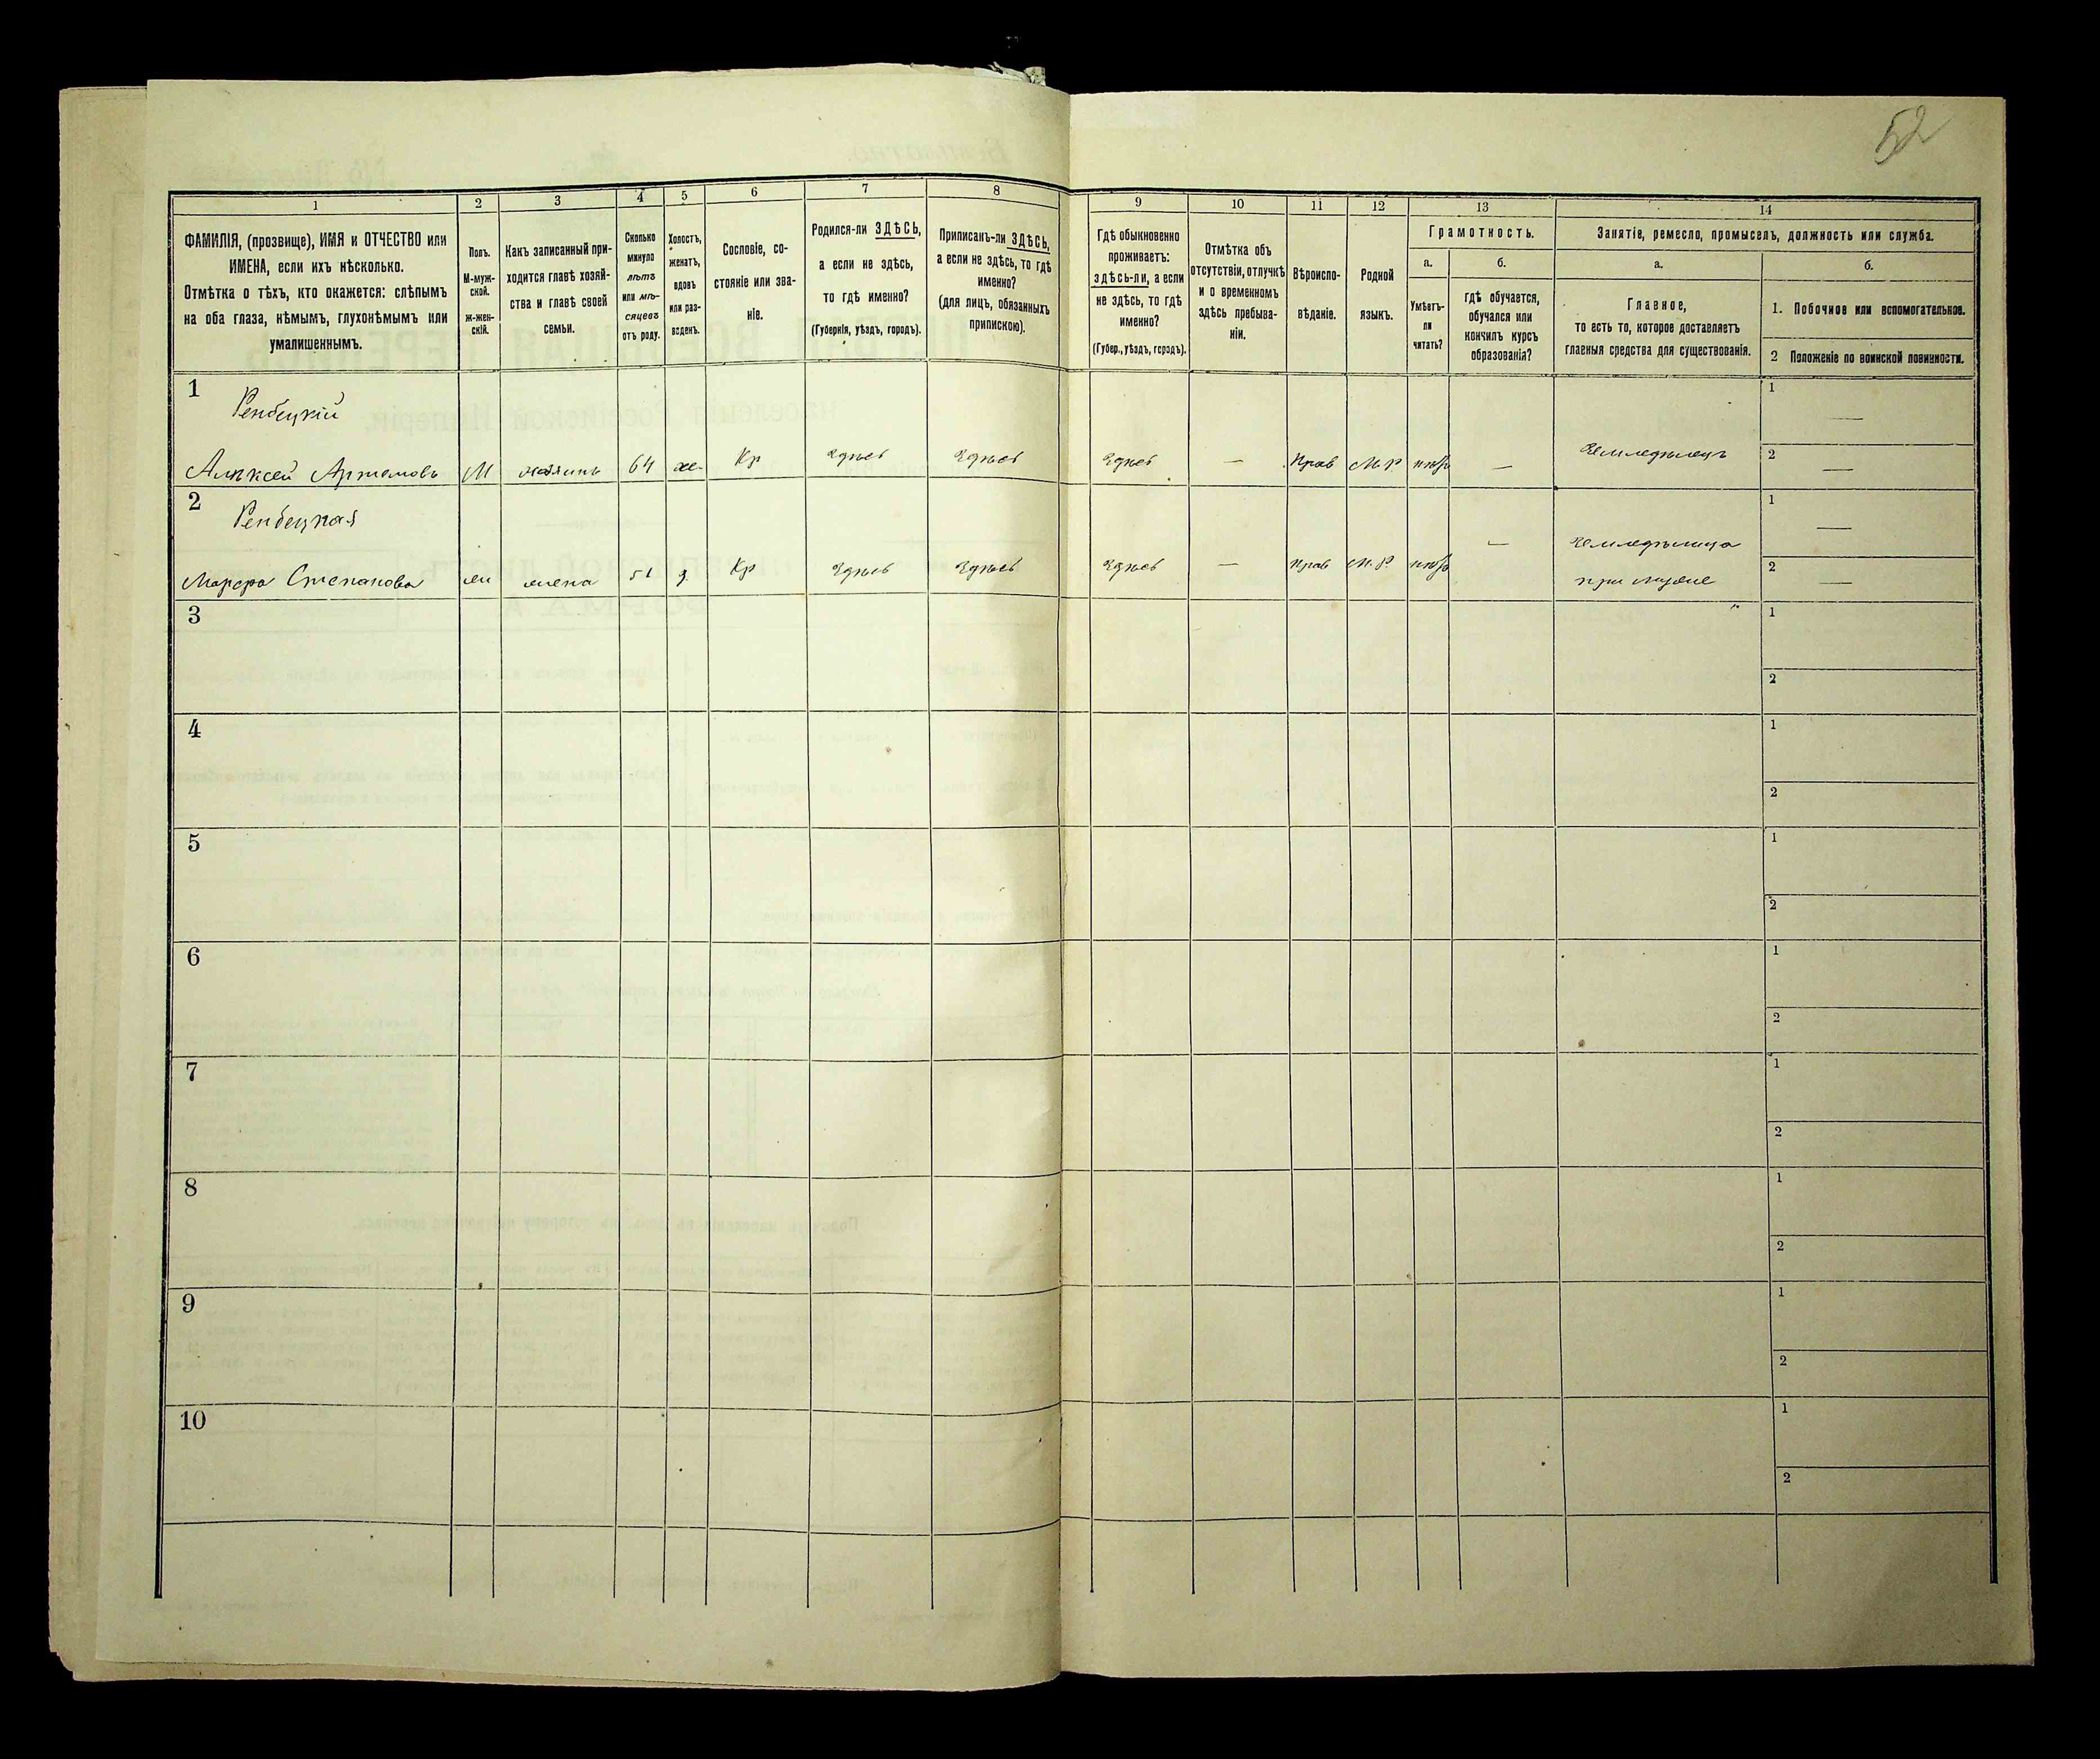 52
1
2
3
4
5
6
7
8
9
10
11
12
13
14
ФАМИЛІЯ, (прозвище), ИМЯ и ОТЧЕСТВО или
ИМЕНА, если ихъ нѣсколько.
Отмѣтка о тѣхъ, кто окажется: слѣпымъ
на оба глаза, нѣмымъ, глухонѣмымъ или
умалишеннымъ.
Полъ.
М-муж-
ской.
ж-жен-
скій.
Какъ записанный при-
ходится главѣ хозяй-
ства и главѣ своей
семьи.
Сколько
минуло
лѣтъ
или мѣ-
сяцевъ
отъ роду.
Холостъ,
женатъ,
вдовъ
или раз-
веденъ.
Сословіе, со-
стояніе или зва-
ніе.
Родился-ли ЗДѢСЬ,
а если не здѣсь,
то гдѣ именно?
(Губернія, уѣздъ, городъ).
Приписанъ-ли ЗДѢСЬ,
а если не здѣсь, то гдѣ
именно?
(для лицъ, обязанныхъ
припискою).
Гдѣ обыкновенно
проживаетъ:
здѣсь-ли, а если
не здѣсь, то гдѣ
именно?
(Губер., уѣздъ, городъ).
Отмѣтка объ
отсутствіи, отлучкѣ
и о временномъ
здѣсь пребыва-
ніи.
Вѣроиспо-
вѣданіе.
Родной
языкъ.
Грамотность.
а.
Умѣетъ-
ли
читать?
б.
гдѣ обучается,
обучался или
кончилъ курсъ
образованія?
Занятіе, ремесло, промыселъ, должность или служба.
а.
Главное,
то есть то, которое доставляетъ
главныя средства для существованія.
б.
1. Побочное или вспомогательное.
2 Положеніе по воинской повинности.
1
Ренбецкій
Алѣксей Артемовъ М хозяинъ 64 же. Кр здѣсь здѣсь здѣсь — Прав М. Р — Земледѣлецъ
1 —
2 —
2
Ренбецкая
Марфа Степанова жена 51 Кр здѣсь здѣсь здѣсь — Прав М. Р. —
при мужѣ
1 —
2 —
3
1
2
4
1
2
5
1
2
6
1
2
7
1
2
8
1
2
9
1
2
10
1
2